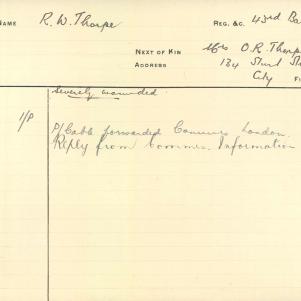 NAME R. W. Thorpe REG. &C. 43rd Ba
NEXT OF KIN Mrs O. R. Thorp
ADDRESS 134 Sturt St
City F
Severely wounded.
1/P P/Cable forwarded Commrs London.
Reply from Commrs. Information